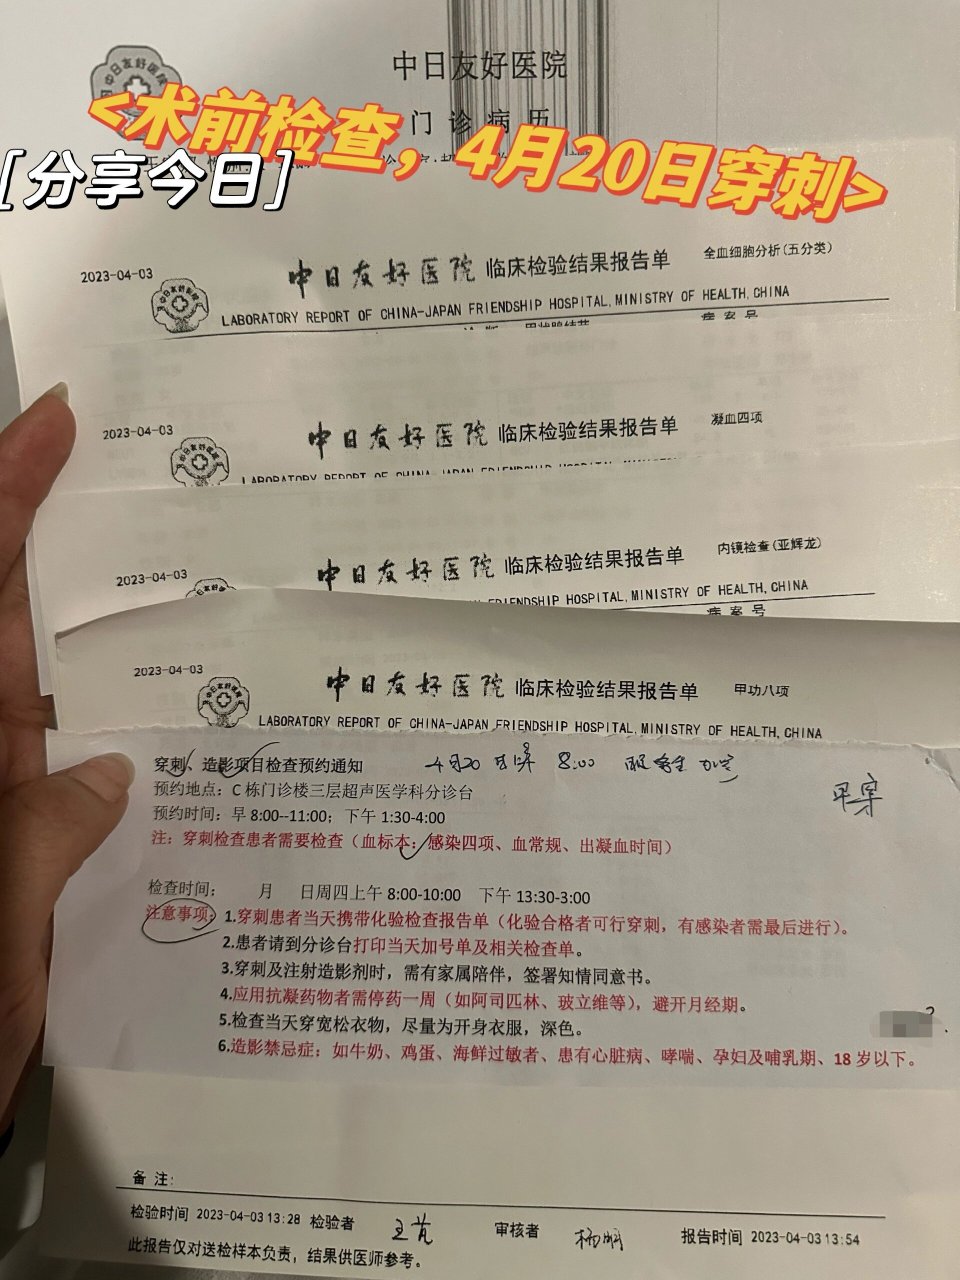 中日友好医院
门诊病历
<术前检查，4月20日穿刺>
[分享今日]
2023-04-03
中日友好医院 临床检验结果报告单 全血细胞分析(五分类)
LABORATORY REPORT OF CHINA-JAPAN FRIENDSHIP HOSPITAL, MINISTRY OF HEALTH, CHINA
病案号
2023-04-03
中日友好医院 临床检验结果报告单 凝血四项
LABORATORY REPORT OF CHINA-JAPAN FRIENDSHIP HOSPITAL
2023-04-03
中日友好医院 临床检验结果报告单 内镜检查(亚辉龙)
FRIENDSHIP HOSPITAL, MINISTRY OF HEALTH, CHINA
病案号
2023-04-03
中日友好医院 临床检验结果报告单 甲功八项
LABORATORY REPORT OF CHINA-JAPAN FRIENDSHIP HOSPITAL, MINISTRY OF HEALTH, CHINA
穿刺、造影项目检查预约通知 4月20日 8:00
甲穿
预约地点：C 栋门诊楼三层超声医学科分诊台
预约时间：早 8:00--11:00；下午 1:30-4:00
注：穿刺检查患者需要检查（血标本：感染四项、血常规、出凝血时间）
检查时间： 月 日周四上午 8:00-10:00 下午 13:30-3:00
注意事项：1.穿刺患者当天携带化验检查报告单（化验合格者可行穿刺，有感染者需最后进行）。
2.患者请到分诊台打印当天加号单及相关检查单。
3.穿刺及注射造影剂时，需有家属陪伴，签署知情同意书。
4.应用抗凝药物者需停药一周（如阿司匹林、玻立维等），避开月经期。
5.检查当天穿宽松衣物，尽量为开身衣服，深色。
6.造影禁忌症：如牛奶、鸡蛋、海鲜过敏者、患有心脏病、哮喘、孕妇及哺乳期、18 岁以下。
备 注：
检验时间 2023-04-03 13:28 检验者 王芃 审核者 报告时间 2023-04-03 13:54
此报告仅对送检样本负责，结果供医师参考。